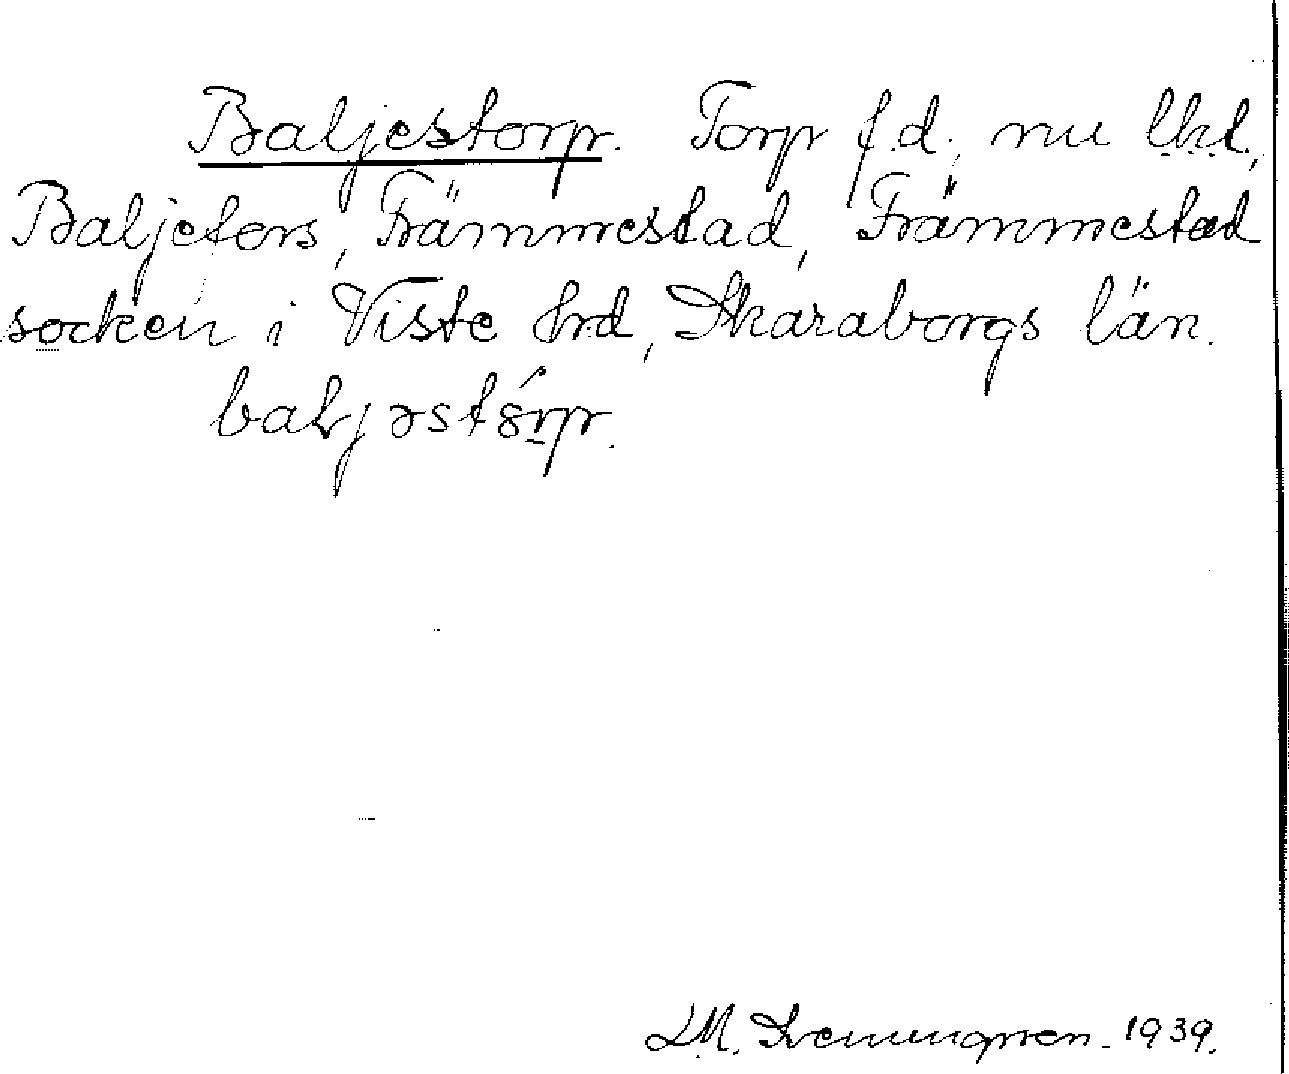 Baljestorp. Torp f.d., nu lht.,
Baljefors, Främmestad, Främmestad
socken i Viste hrd, Skaraborgs län.
baljəstórp.
M. 1939.